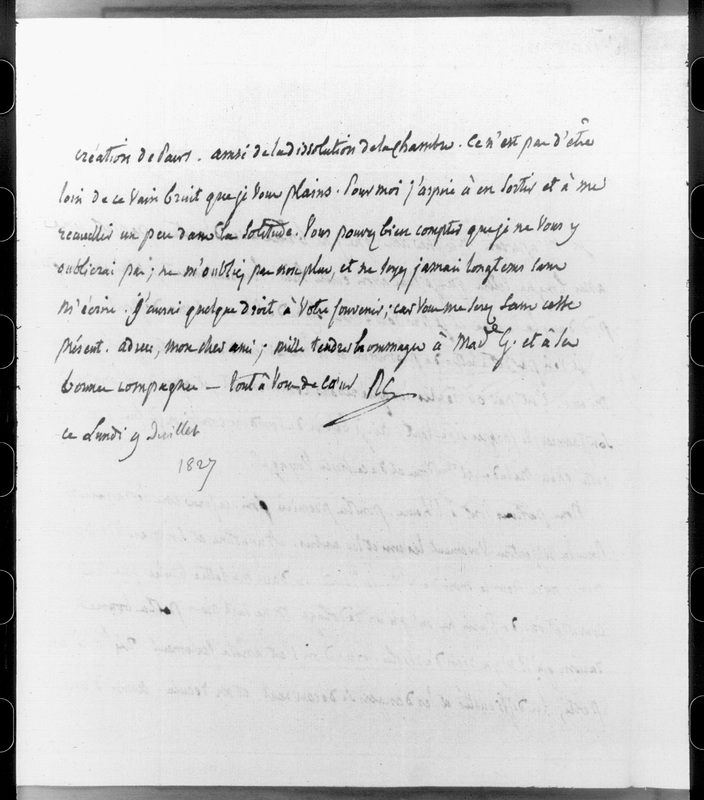 création de Pairs. ainsi de la dissolution de la Chambre. Ce n'est pas d'être
loin de ce vain bruit que je vous plains. Pour moi j'aspire à en sortir et à me
recueillir un peu dans la solitude. Vous pouvez bien compter que je ne vous y
oublierai pas; ne m'oubliez pas non plus, et ne soyez jamais longtems sans
m'écrire. J'aurai quelque droit à votre souvenir; car vous me serez sans cesse
présent. adieu, mon cher ami; mille tendres hommages à Made G. et à sa
bonne compagne — tout à vous de cœur
ce Lundi 9 Juillet
1827